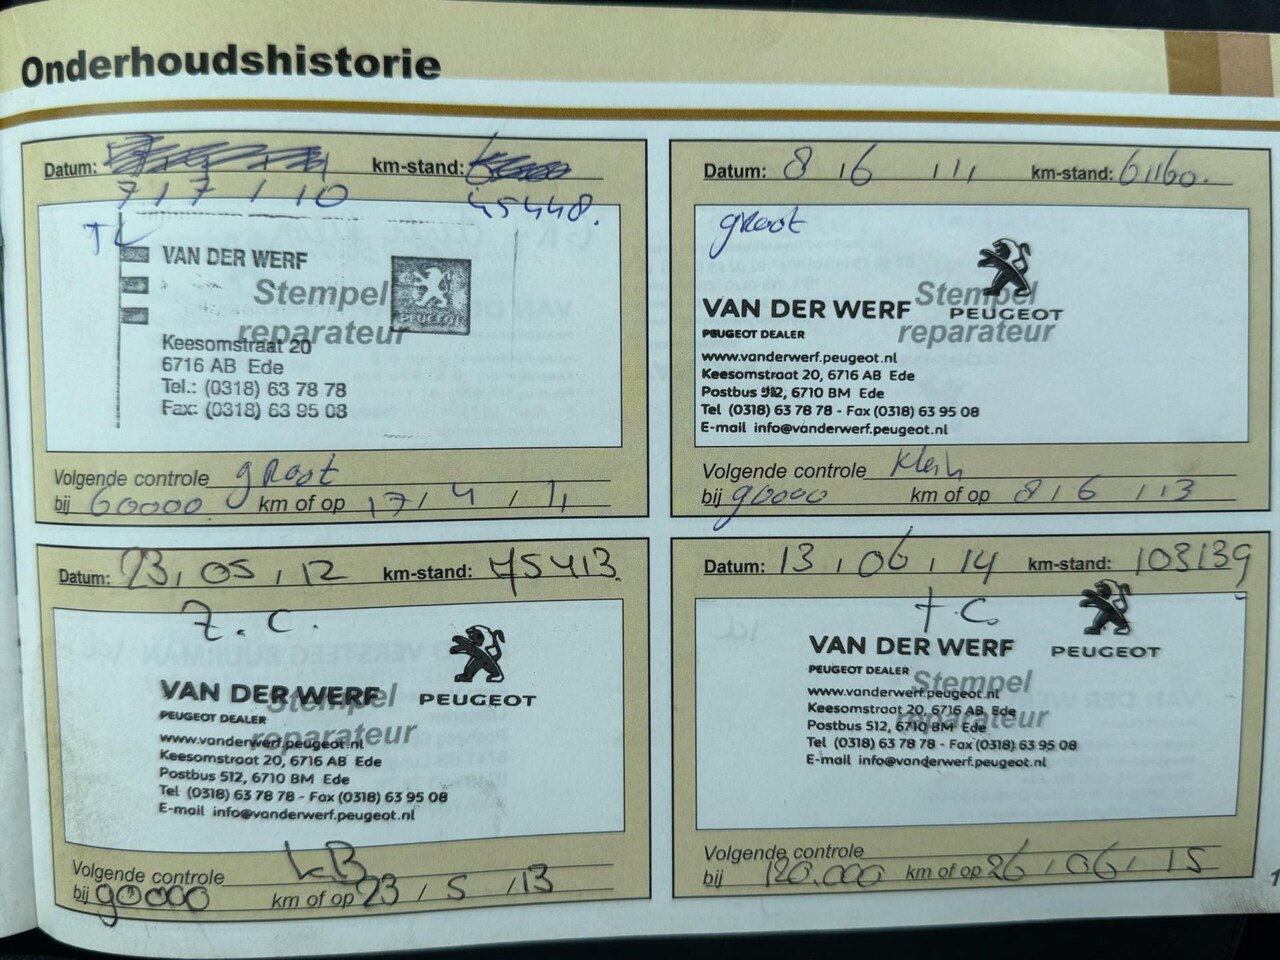 Onderhoudshistorie
Datum: km-stand:
7 / 7 / 10 45448.
TC
VAN DER WERF
Stempel
PEUGEOT
reparateur
Keesomstraat 20
6716 AB Ede
Tel.: (0318) 63 78 78
Fax: (0318) 63 95 08
Volgende controle groot
bij 60000 km of op 17 / 4 / 11
Datum: 8 / 6 / 11 km-stand: 61160.
groot
VAN DER WERF Stempel PEUGEOT
PEUGEOT DEALER reparateur
www.vanderwerf.peugeot.nl
Keesomstraat 20, 6716 AB Ede
Postbus 512, 6710 BM Ede
Tel (0318) 63 78 78 - Fax (0318) 63 95 08
E-mail info@vanderwerf.peugeot.nl
Volgende controle klein
bij 90000 km of op 8 / 6 / 13
Datum: 23 / 05 / 12 km-stand: 75413.
T.C.
VAN DER WERF Stempel PEUGEOT
PEUGEOT DEALER reparateur
www.vanderwerf.peugeot.nl
Keesomstraat 20, 6716 AB Ede
Postbus 512, 6710 BM Ede
Tel (0318) 63 78 78 - Fax (0318) 63 95 08
E-mail info@vanderwerf.peugeot.nl
Volgende controle KB
bij 90000 km of op 23 / 5 / 13
Datum: 13 / 06 / 14 km-stand: 103139
T.C.
VAN DER WERF PEUGEOT
PEUGEOT DEALER Stempel
www.vanderwerf.peugeot.nl
Keesomstraat 20, 6716 AB Ede
reparateur
Postbus 512, 6710 BM Ede
Tel (0318) 63 78 78 - Fax (0318) 63 95 08
E-mail info@vanderwerf.peugeot.nl
Volgende controle
bij 120.000 km of op 26 / 06 / 15